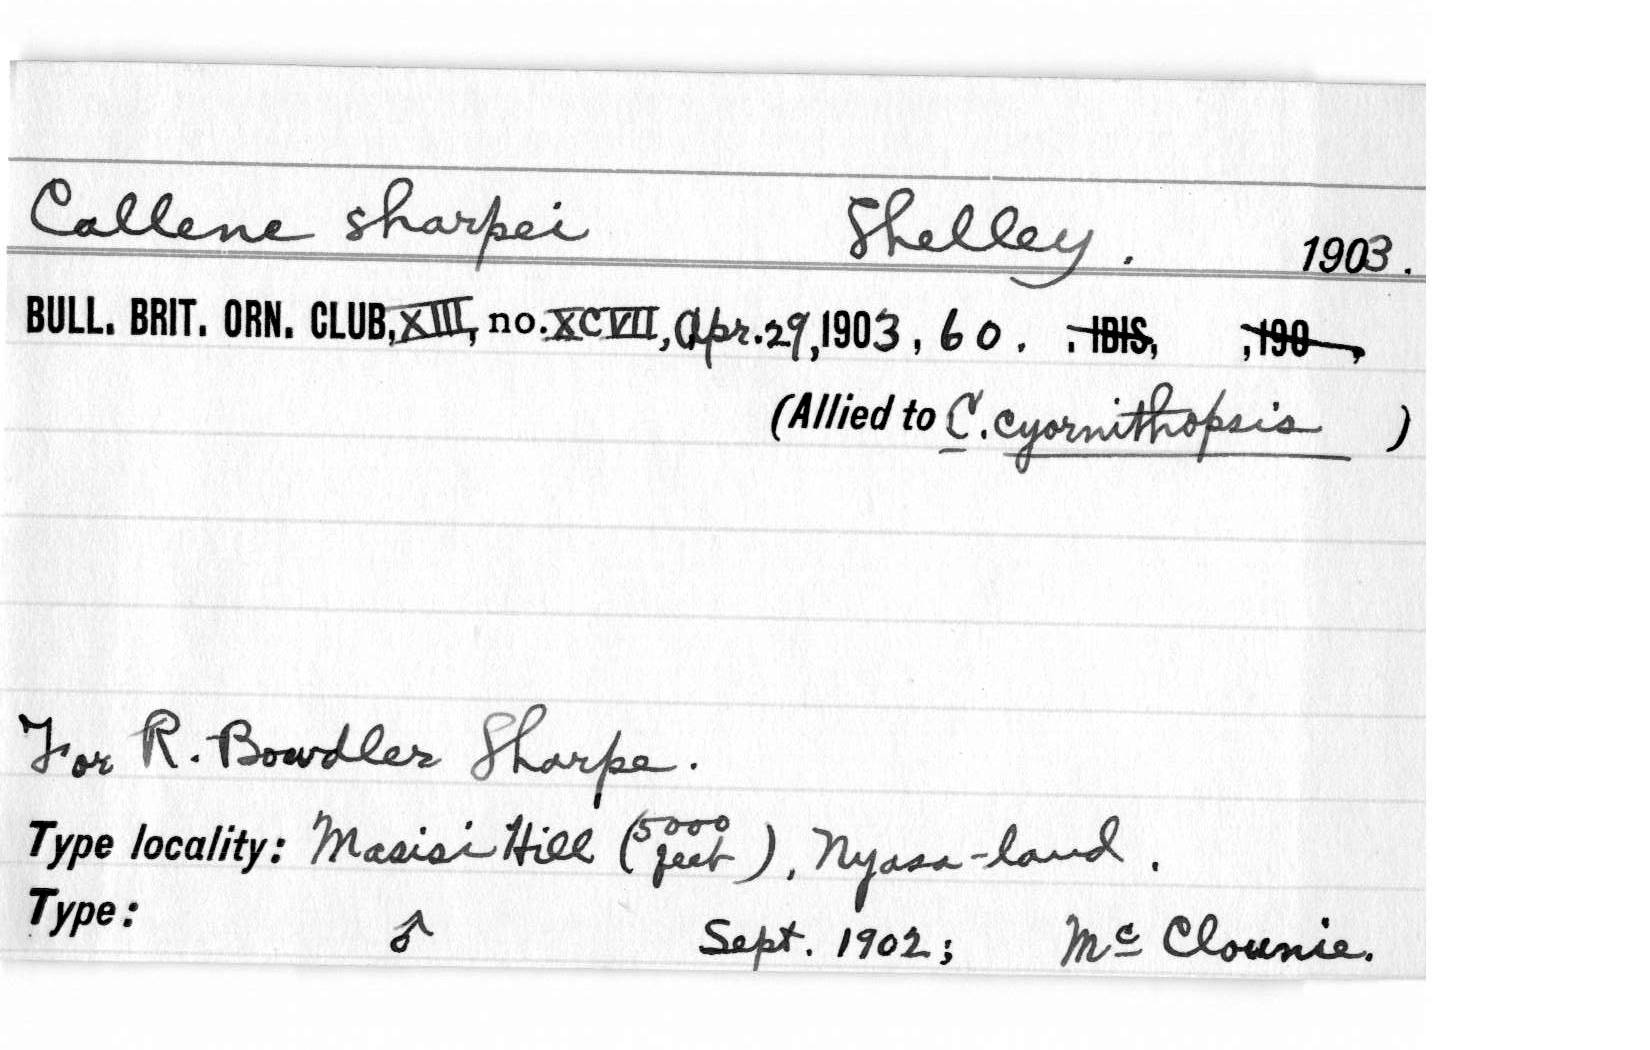 Callene sharpei Shelley. 1903.
BULL. BRIT. ORN. CLUB, XIII, no. XCVII, Apr. 29, 1903, 60. . IBIS, , 190 ,
(Allied to C. cyornithopsis )
For R. Bowdler Sharpe.
Type locality: Masisi Hill (5000 feet), Nyasa-land.
Type: ♂ Sept. 1902; Mc Clounie.